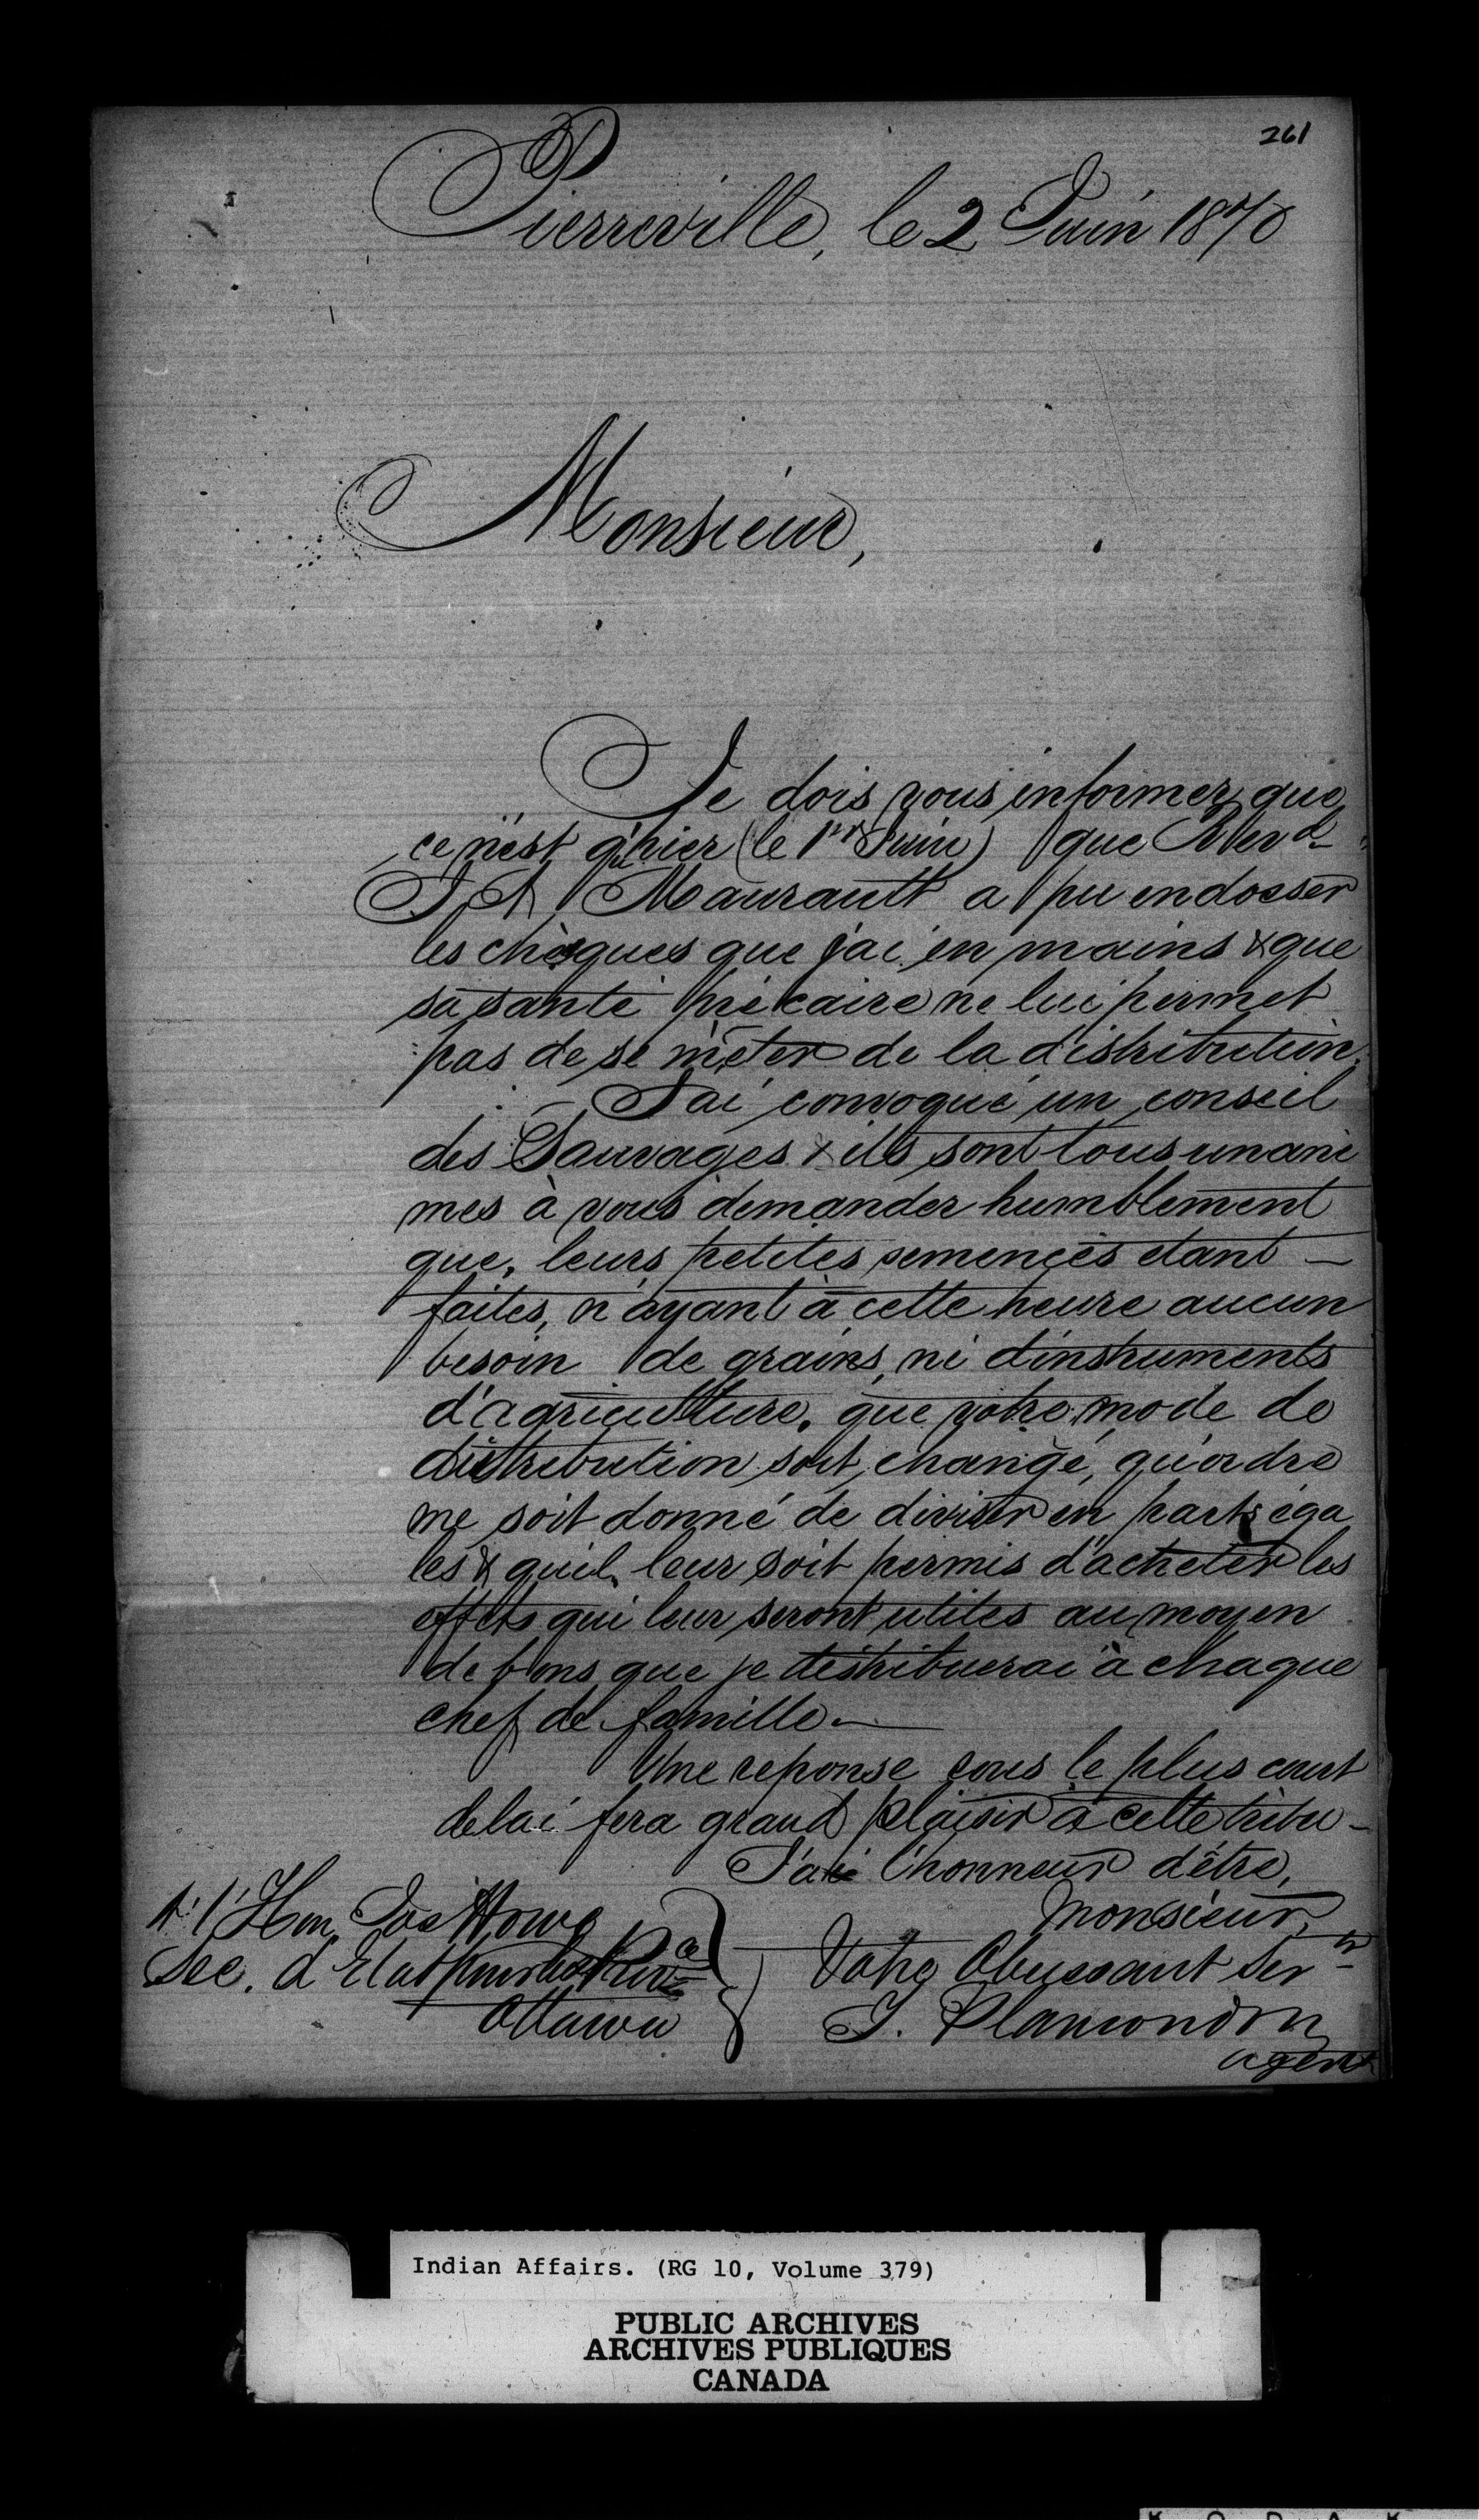 261
Pierreville, le 2 Juin 1870
Monsieur,
Je dois vous informer que
ce n'est qu'hier (le 1er Juin) que Revd
J A Maurault a pu endosser
les chèques que j'ai en mains & que
sa santé précaire ne lui permet
pas de se mêler de la distribution.
J'ai convoqué un conseil
des Sauvages & ils sont tous unani
mes à vous demander humblement
que, leurs petites semences etant —
faites, n'ayant à cette heure aucun
besoin de grains, ni d'instruments
d'agriculture, que votre mode de
distribution soit changé, qu'ordre
me soit donné de diviser en parts éga
les & qu'il leur soit permis d'acheter les
effets qui leur seront utiles au moyen
de bons que je distribuerai à chaque
chef de famille —
Une reponse sous le plus court
delai fera grand plaisir à cette tribu —
J'ai l'honneur d'être,
Monsieur,
Votre Obeissant Serr
J. Plamondon
agent
A l'Hon. Jos Howe
Sec. d'Etat pour les
Ottawa
Indian Affairs. (RG 10, Volume 379)
PUBLIC ARCHIVES
ARCHIVES PUBLIQUES
CANADA